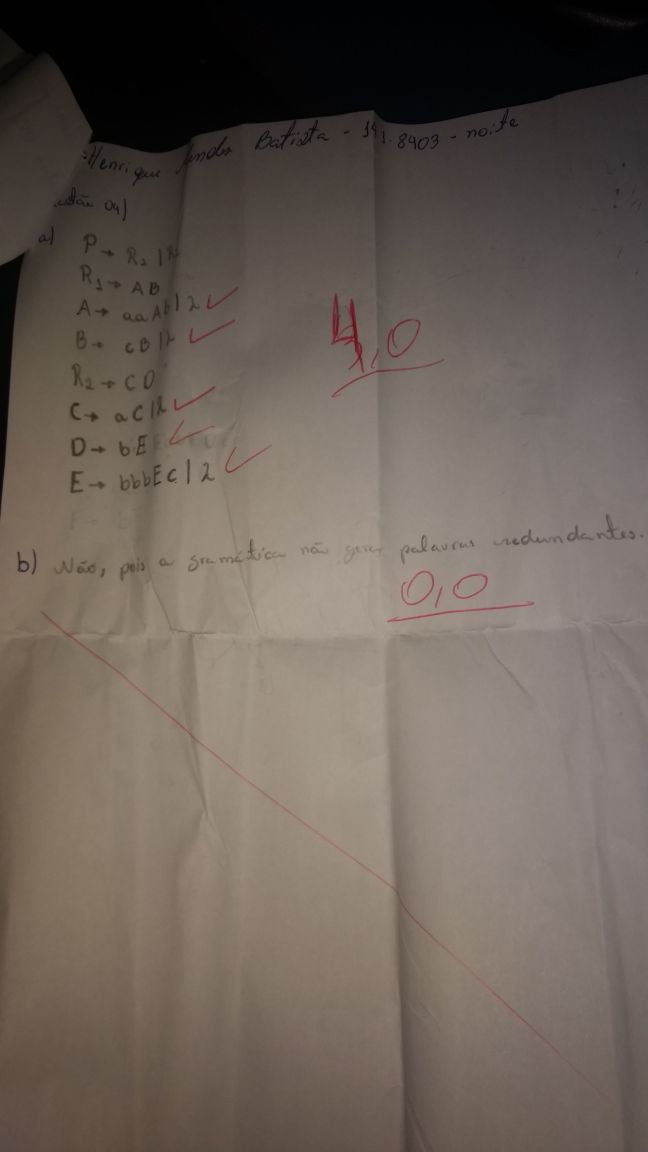 Henrique Batista - 141.8403 - noite
04)
a)
P → R₁ | R₂
R₁ → AB
A → aaAb | λ
B → cB | λ
R₂ → CD
C → aC | λ
D → bE
E → bbbEc | λ
4,0
b) Não, pois a gramática não gera palavras redundantes.
0,0